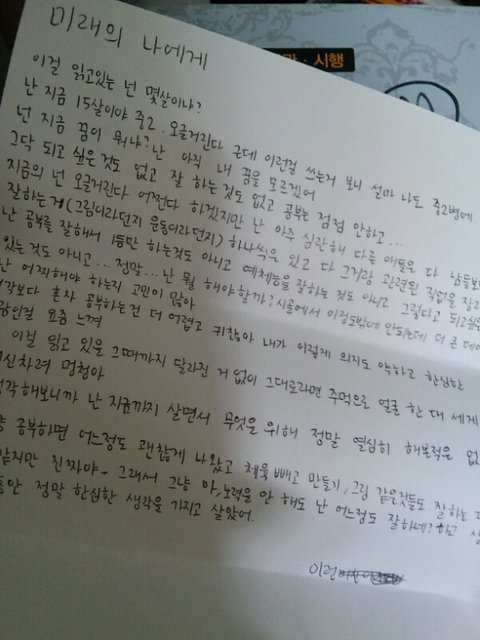 미래의 나에게
· 시행
이걸 읽고있는 넌 몇살이냐?
난 지금 15살이야 중2. 오글거린다 근데 이런걸 쓰는거 보니 설마 나도 중2병에
넌 지금 꿈이 뭐냐? 난 아직 내 꿈을 모르겠어
그닥 되고 싶은것도 없고 잘 하는것도 없고 공부는 점점 안하고...
지금의 넌 오글거린다 어쩐다 하겠지만 난 아주 심각해 다른 애들은 다 남들보
잘하는게(그림이라던지 운동이라던지) 하나씩은 있고 다 그거랑 관련된 직업을 장래
난 공부를 잘해서 1등만 하는것도 아니고 예체능을 잘하는 것도 아니고 그렇다고 되고싶은
있는것도 아니고... 정말... 난 뭘 해야할까? 시골에서 이정도밖에 안되는데 더 큰 데
난 어찌해야 하는지 고민이 많아
각보다 혼자 공부하는건 더 어렵고 귀찮아 내가 이렇게 의지도 약하고 한심한
람인걸 요즘 느껴
이걸 읽고 있을 그때까지 달라진 거 없이 그대로라면 주먹으로 얼굴 한 대 세게
신차려 멍청아
각해보니까 난 지금까지 살면서 무엇을 위해 정말 열심히 해본적은 없
공부하면 어느정도 괜찮게 나왔고 체육 빼고 만들기, 그림 같은것들도 잘하는
같지만 진짜야~ 그래서 그냥 아, 노력을 안 해도 난 어느정도 잘하네? 하고 생
동안 정말 한심한 생각을 가지고 살았어.
이런